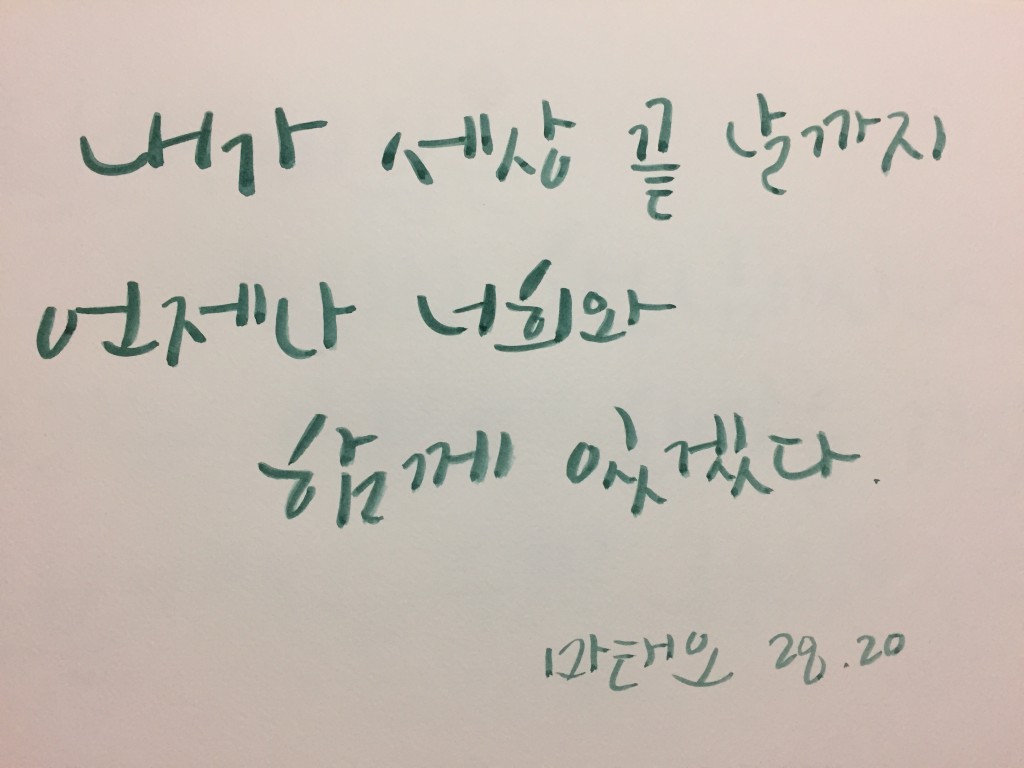 내가 세상 끝 날까지
언제나 너희와
함께 있겠다.
마태오 28.20